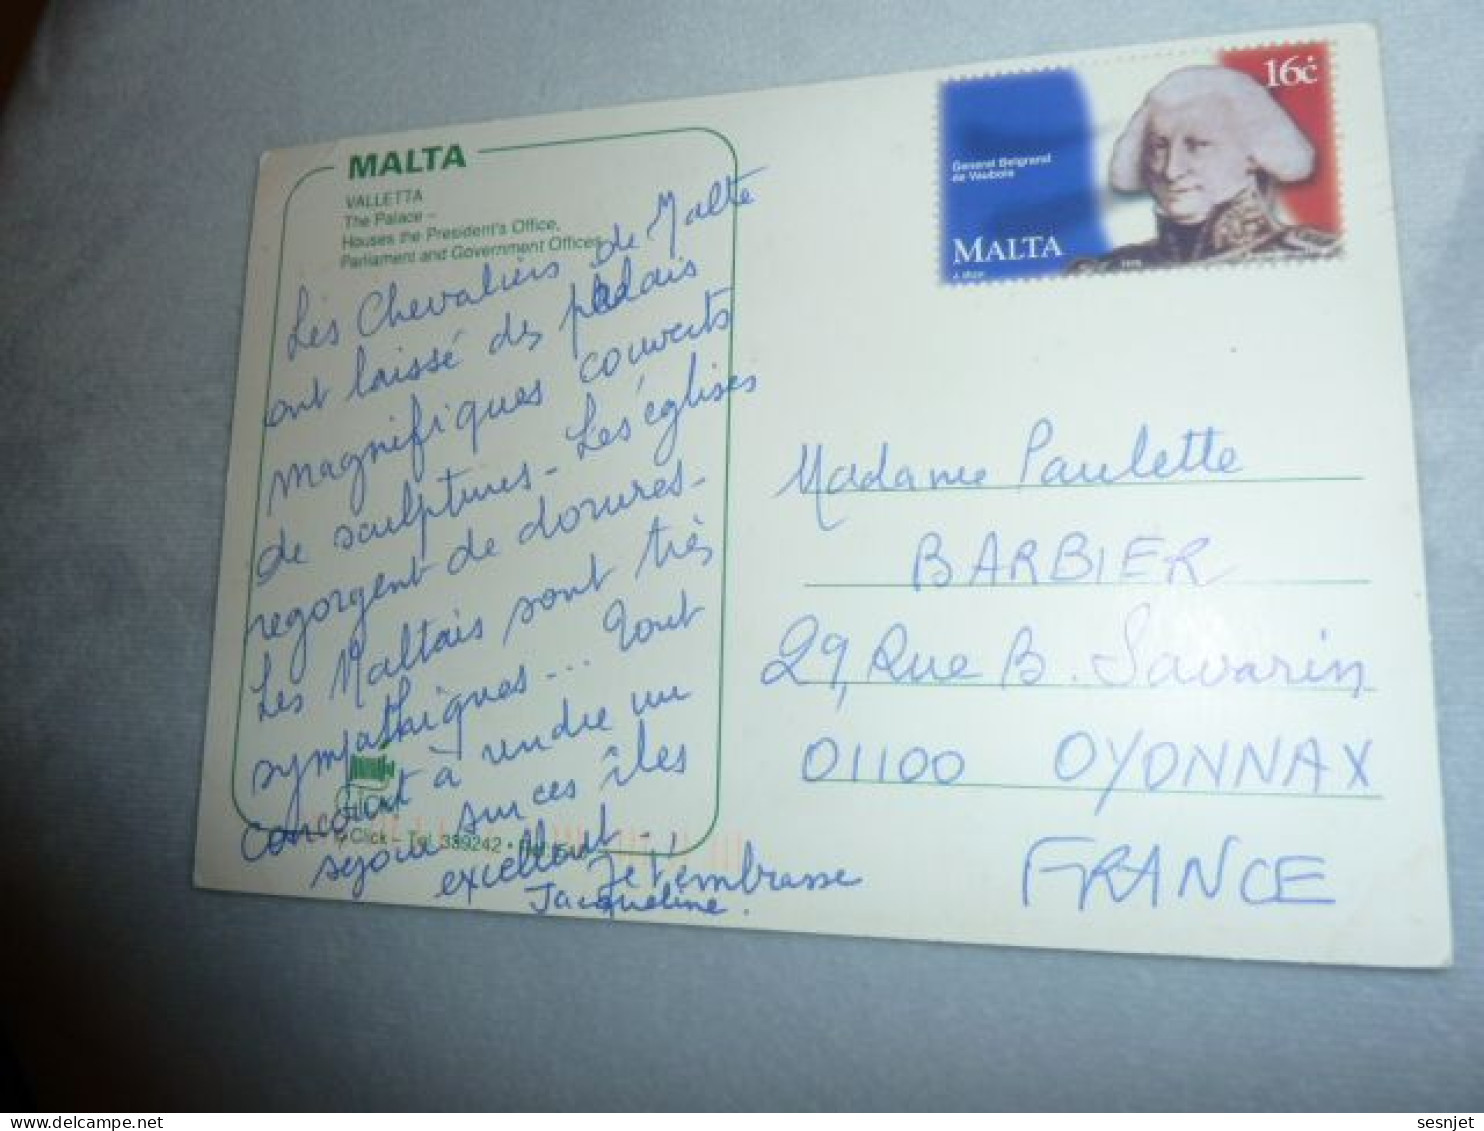 MALTA
VALLETTA
The Palace –
Houses the President's Office,
Parliament and Government Offices
Les Chevaliers de Malte
ont laissé des palais
magnifiques couverts
de sculptures - Les églises
regorgent de dorures -
Les Maltais sont très
sympathiques... Tout
concourt à rendre un
séjour sur ces îles
excellent -
Je t'embrasse
Jacqueline.
Click – Tel 339242 •
16c
General Belgrand
de Vaubois
MALTA
Madame Paulette
BARBIER
29, Rue B. Savarin
01100 OYONNAX
FRANCE
sesnjet